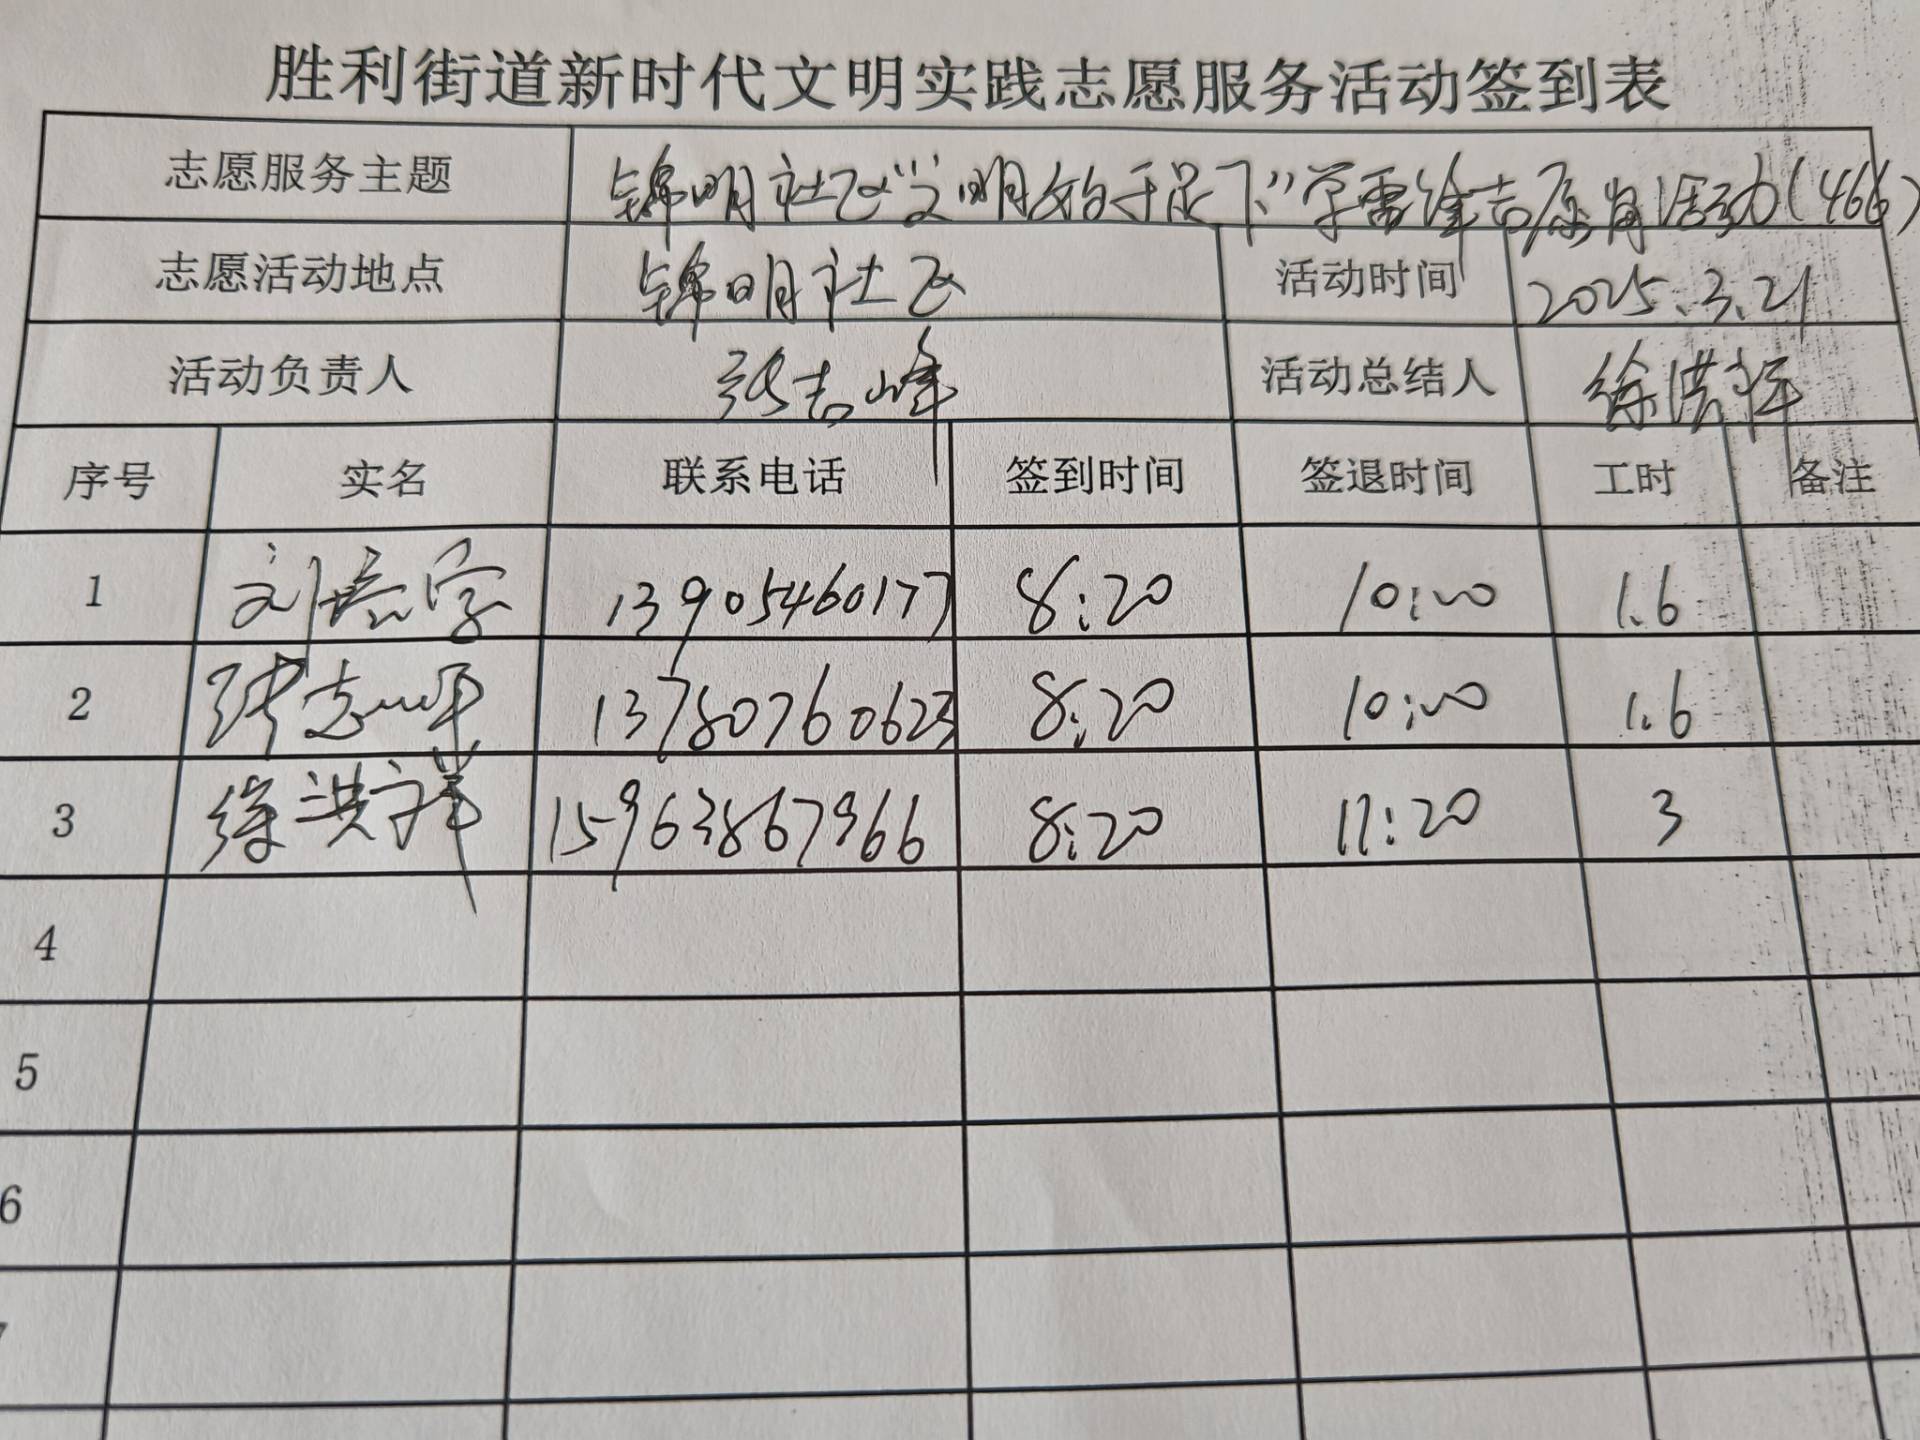 胜利街道新时代文明实践志愿服务活动签到表
志愿服务主题 锦明社区“文明始于足下”学雷锋志愿者活动(466)
志愿活动地点 锦明社区 活动时间 2025.3.21
活动负责人 张志峰 活动总结人 徐洪祥
序号 实名 联系电话 签到时间 签退时间 工时 备注
1 刘 13905460177 8:20 10:00 1.6
2 张志峰 13780760623 8:20 10:00 1.6
3 徐洪祥 15963867966 8:20 11:20 3
4
5
6